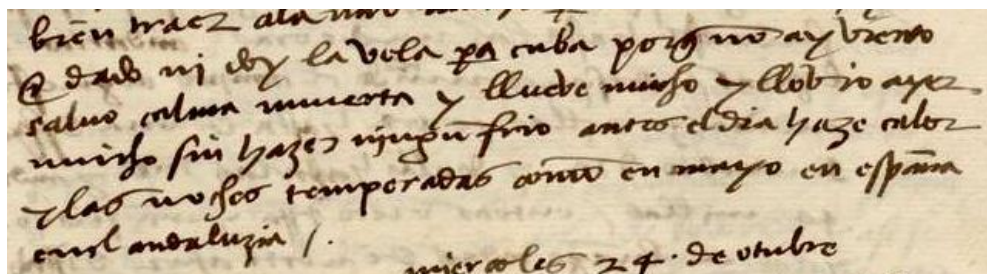 bien traer ala nao
q̃ dado ni doy la vela pa cuba porq̃ no ay viento
salvo calma muerta y llueve mucho y llovio ayer
mucho sin hazer ningun frio antes el dia haze calor
y las noches temperadas como en mayo en españa
en el andaluzia /.
miercoles 24. de otubre